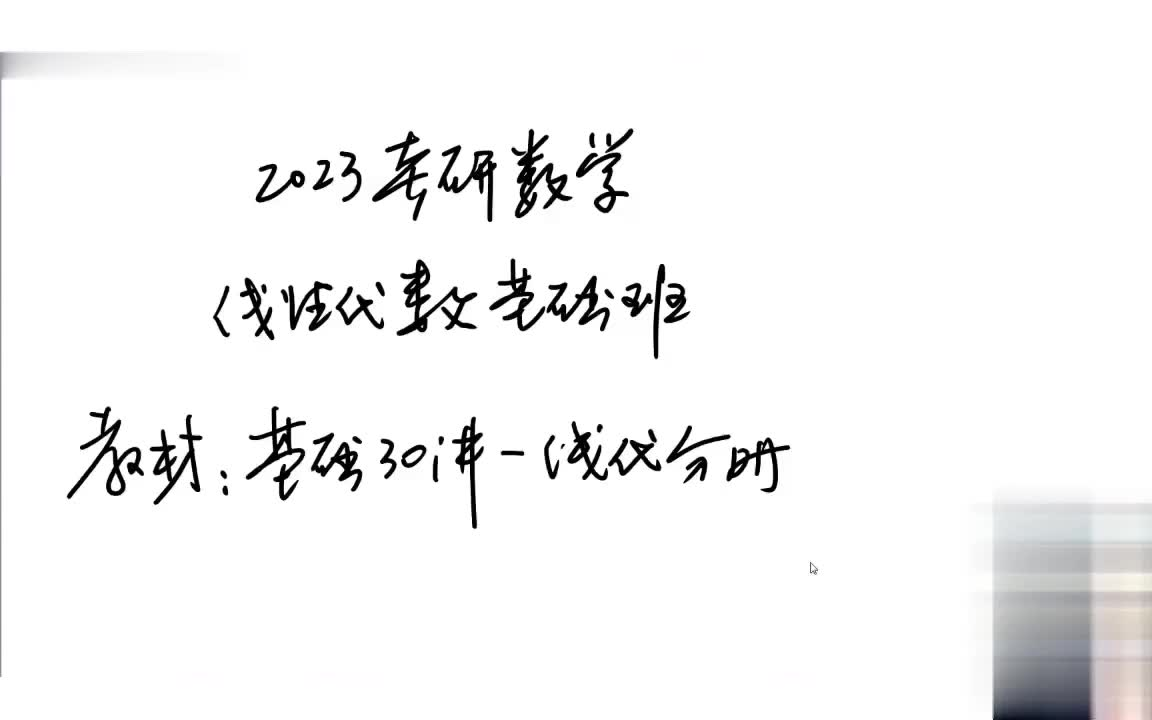 2023考研数学
线性代数基础班
教材:基础30讲-线代分册